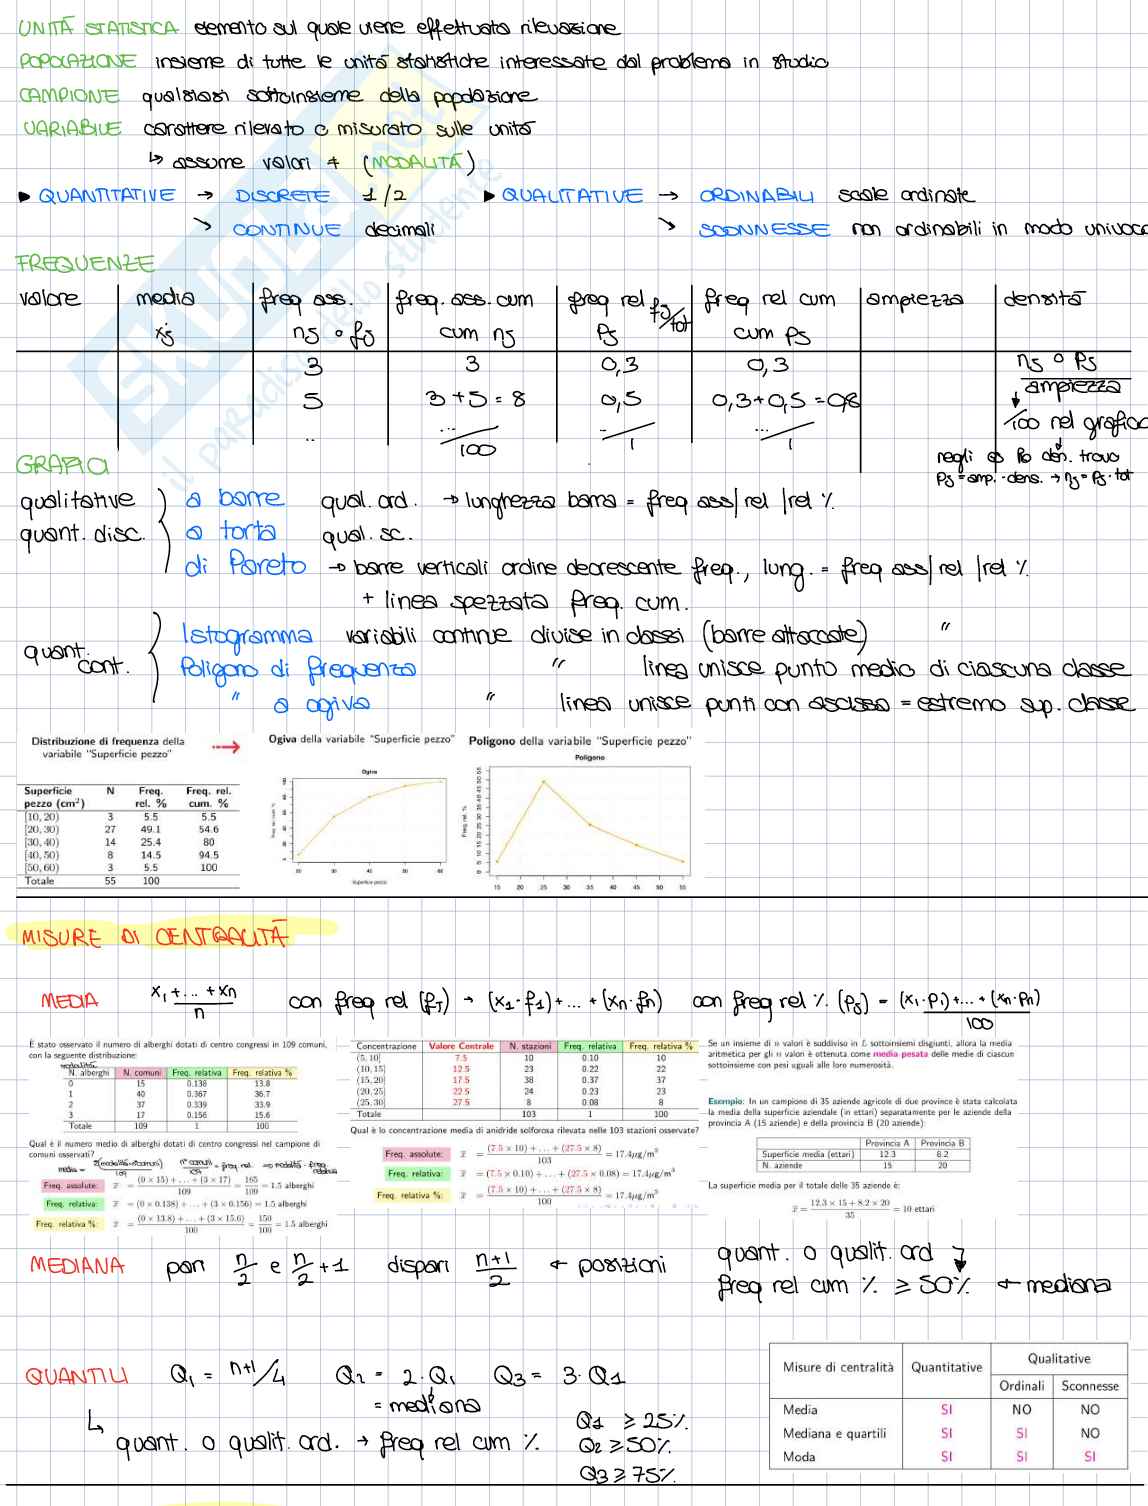 UNITÀ STATISTICA elemento sul quale viene effettuata rilevazione
POPOLAZIONE insieme di tutte le unità statistiche interessate dal problema in studio
CAMPIONE qualsiasi sottoinsieme della popolazione
VARIABILE carattere rilevato o misurato sulle unità
↳ assume valori ≠ (MODALITÀ)
▸ QUANTITATIVE → DISCRETE 1/2 ▸ QUALITATIVE → ORDINABILI scale ordinate
↘ CONTINUE decimali ↘ SCONNESSE non ordinabili in modo univoco
FREQUENZE
valore | media | freq ass. | freq. ass. cum | freq rel fj/tot | freq rel cum | ampiezza | densità
xj | nj o fj | cum nj | Pj | cum Pj
3 | 3 | 0,3 | 0,3 | nj o Pj
5 | 3+5=8 | 0,5 | 0,3+0,5=0,8 | ampiezza
.. | ... /100 | .. /1 | ... /1 | ↓ /100 nel grafico
GRAFICI
Pj = amp. · dens. → nj = Pj · tot
qualitative
quant. disc.
a barre qual. ord. → lunghezza barra = freq ass/rel/rel %
a torta qual. sc.
di Pareto → barre verticali ordine decrescente freq., lung. = freq ass/rel/rel %
+ linea spezzata freq. cum.
quant. cont.
Istogramma variabili continue divise in classi (barre attaccate) "
Poligono di frequenza " linea unisce punto medio di ciascuna classe
" a ogiva " linea unisce punti con ascissa = estremo sup. classe
Distribuzione di frequenza della
variabile "Superficie pezzo"
Superficie pezzo (cm²) | N | Freq. rel. % | Freq. rel. cum. %
[10, 20) 3 5.5 5.5
[20, 30) 27 49.1 54.6
[30, 40) 14 25.4 80
[40, 50) 8 14.5 94.5
[50, 60) 3 5.5 100
Totale 55 100
Ogiva della variabile "Superficie pezzo"
Ogiva
Superficie pezzo
Poligono della variabile "Superficie pezzo"
Poligono
Freq rel. %
15 20 25 30 35 40 45 50 55
MISURE DI CENTRALITÀ
MEDIA x1+...+xn / n con freq rel (fj) → (x1·f1)+...+(xn·fn) con freq rel % (Pj) = (x1·p1)+...+(xn·pn) / 100
È stato osservato il numero di alberghi dotati di centro congressi in 109 comuni,
con la seguente distribuzione:
modalità
N. alberghi | N. comuni | Freq. relativa | Freq. relativa %
0 15 0.138 13.8
1 40 0.367 36.7
2 37 0.339 33.9
3 17 0.156 15.6
Totale 109 1 100
Qual è il numero medio di alberghi dotati di centro congressi nel campione di
comuni osservati?
Freq. assolute: x̄ = (0 × 15) + ... + (3 × 17) / 109 = 165/109 = 1.5 alberghi
Freq. relativa: x̄ = (0 × 0.138) + ... + (3 × 0.156) = 1.5 alberghi
Freq. relativa %: x̄ = (0 × 13.8) + ... + (3 × 15.6) / 100 = 150/100 = 1.5 alberghi
Concentrazione | Valore Centrale | N. stazioni | Freq. relativa | Freq. relativa %
(5, 10] 7.5 10 0.10 10
(10, 15] 12.5 23 0.22 22
(15, 20] 17.5 38 0.37 37
(20, 25] 22.5 24 0.23 23
(25, 30] 27.5 8 0.08 8
Totale 103 1 100
Qual è lo concentrazione media di anidride solforosa rilevata nelle 103 stazioni osservate?
Freq. assolute: x̄ = (7.5 × 10) + ... + (27.5 × 8) / 103 = 17.4μg/m³
Freq. relativa: x̄ = (7.5 × 0.10) + ... + (27.5 × 0.08) = 17.4μg/m³
Freq. relativa %: x̄ = (7.5 × 10) + ... + (27.5 × 8) / 100 = 17.4μg/m³
Se un insieme di n valori è suddiviso in L sottoinsiemi disgiunti, allora la media
aritmetica per gli n valori è ottenuta come media pesata delle medie di ciascun
sottoinsieme con pesi uguali alle loro numerosità.
Esempio: In un campione di 35 aziende agricole di due province è stata calcolata
la media della superficie aziendale (in ettari) separatamente per le aziende della
provincia A (15 aziende) e della provincia B (20 aziende):
Provincia A | Provincia B
Superficie media (ettari) 12.3 8.2
N. aziende 15 20
La superficie media per il totale delle 35 aziende è:
x̄ = 12.3 × 15 + 8.2 × 20 / 35 = 10 ettari
MEDIANA pari n/2 e n/2+1 dispari n+1/2 ← posizioni
quant. o qualit. ord
freq rel cum % ≥ 50% ← mediana
QUANTILI Q1 = n+1/4 Q2 = 2·Q1 Q3 = 3·Q1
= mediana
↳ quant. o qualit. ord. → freq rel cum %
Q1 ≥ 25%
Q2 ≥ 50%
Q3 ≥ 75%
Misure di centralità | Quantitative | Qualitative
Ordinali | Sconnesse
Media SI NO NO
Mediana e quartili SI SI NO
Moda SI SI SI